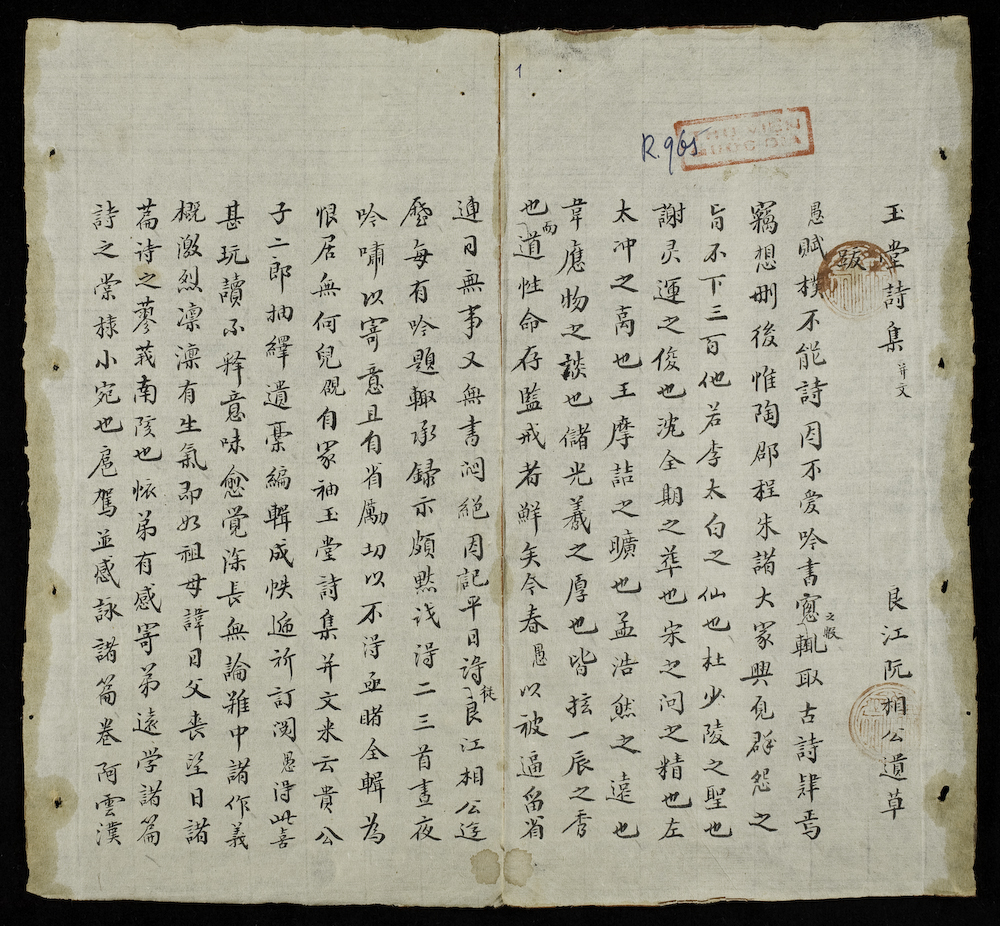 1
R.965
THƯ VIỆN
QUỐC GIA
玉堂詩集并文 良江阮相公遺草
跋
愚賦樸不能詩因不愛吟書窓之暇輒取古詩肆焉
竊想刪後惟陶邵程朱諸大家興免群怨之
旨不下三百他若李太白之仙也杜少陵之聖也
謝灵運之俊也沈全期之華也宋之问之精也左
太冲之高也王摩詰之曠也孟浩然之遠也
韋應物之談也儲光羲之厚也皆拡一辰之秀
也而道性命存監戒者鮮矣今春愚以被逼留省
連日無事又無書闷絕因記平日詩徒良江相公遊
歷每有吟題輒承録示頗黙识得二三首晝夜
吟嘯以寄意且有省勵切以不得亟睹全輯為
恨居無何兒覌自家袖玉堂詩集并文来云貴公
子二郎抽繹遺稾編輯成帙逓祈訂閲愚得此喜
甚玩讀不釋意味愈覺深長無論雜中諸作義
概激烈凛凛有生氣即如祖母諱日父喪望日諸
萹詩之蓼莪南陔也懷弟有感寄弟遠学諸篇
詩之棠棣小宛也扈駕並感詠諸篇卷阿雲漢